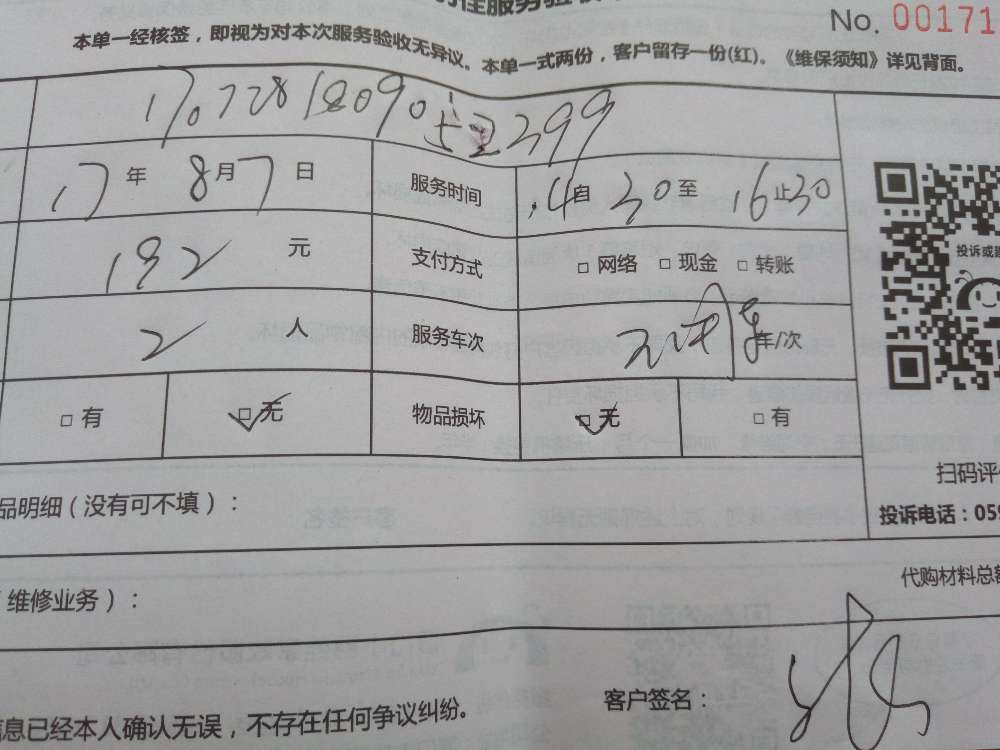 程服务验收
No. 00171
本单一经核签，即视为对本次服务验收无异议。本单一式两份，客户留存一份(红)。《维保须知》详见背面。
17年 8月 7日 服务时间 14自 30至 16止30
192元 支付方式 □ 网络 □ 现金 □ 转账
2人 服务车次 车/次
□ 有 □ 无 物品损坏 □ 无 □ 有
投诉或
扫码评
品明细（没有可不填）：
投诉电话：059
代购材料总额
维修业务）：
客户签名：
信息已经本人确认无误，不存在任何争议纠纷。